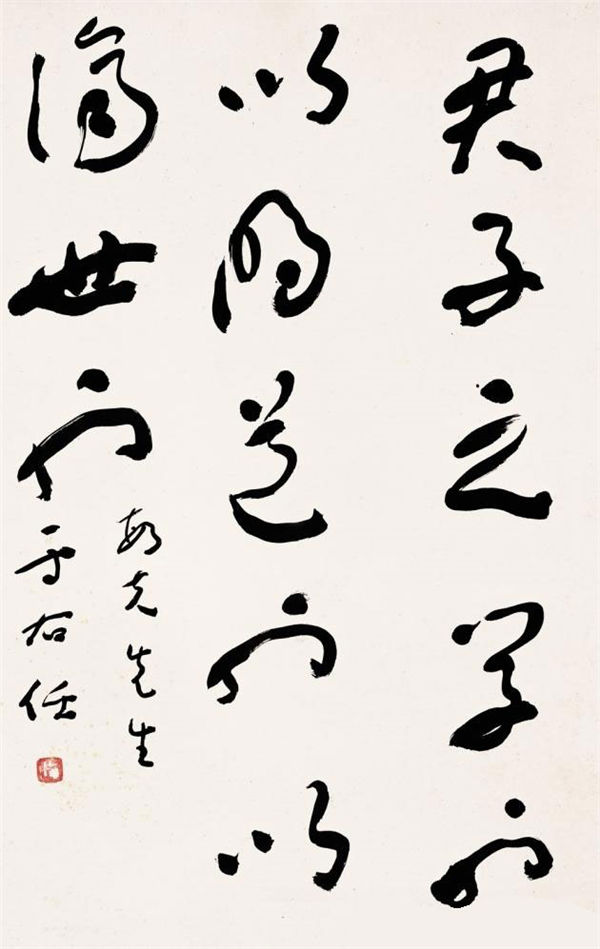 君子之學也
以明道也以
濟世也
先生
于右任